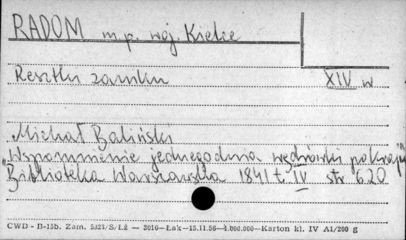 RADOM m.p. woj. Kielce
Resztki zamku XIV w
Michał Baliński
"Wspomnienie jednego dnia wędrówki po kraju"
Biblioteka Warszawska 1841 t. IV str 620
CWD - D-15b. Zam. /S/Łź — 3016 — Łak — 15.11.56 — 4.000.000 — Karton kl. IV A1/200 g